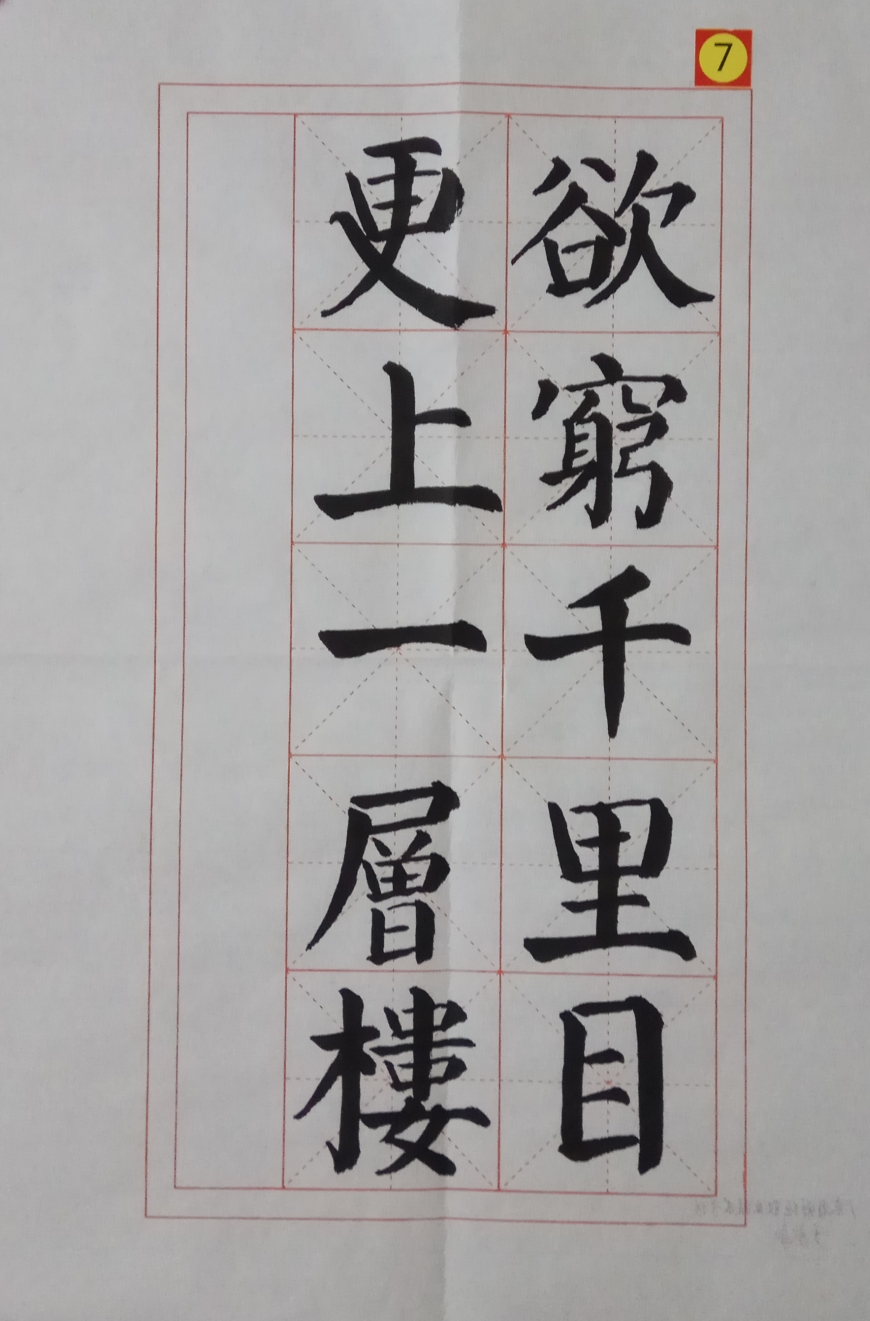 7
欲窮千里目
更上一層樓